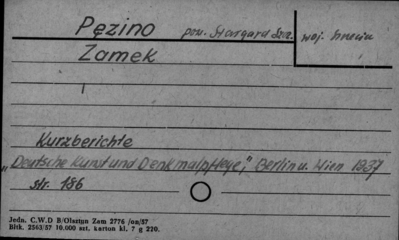 Pęzino pow. Stargard Szcz. woj.
Zamek
Kurzberichte
"Deutsche Kunst und Denkmalpflege," Berlin u. Wien 1937
str. 186
Jedn. C.W.D B/Olsztyn Zam 2776 /on/57
Bltk. 2563/57 10.000 szt. karton kl. 7 g 220.